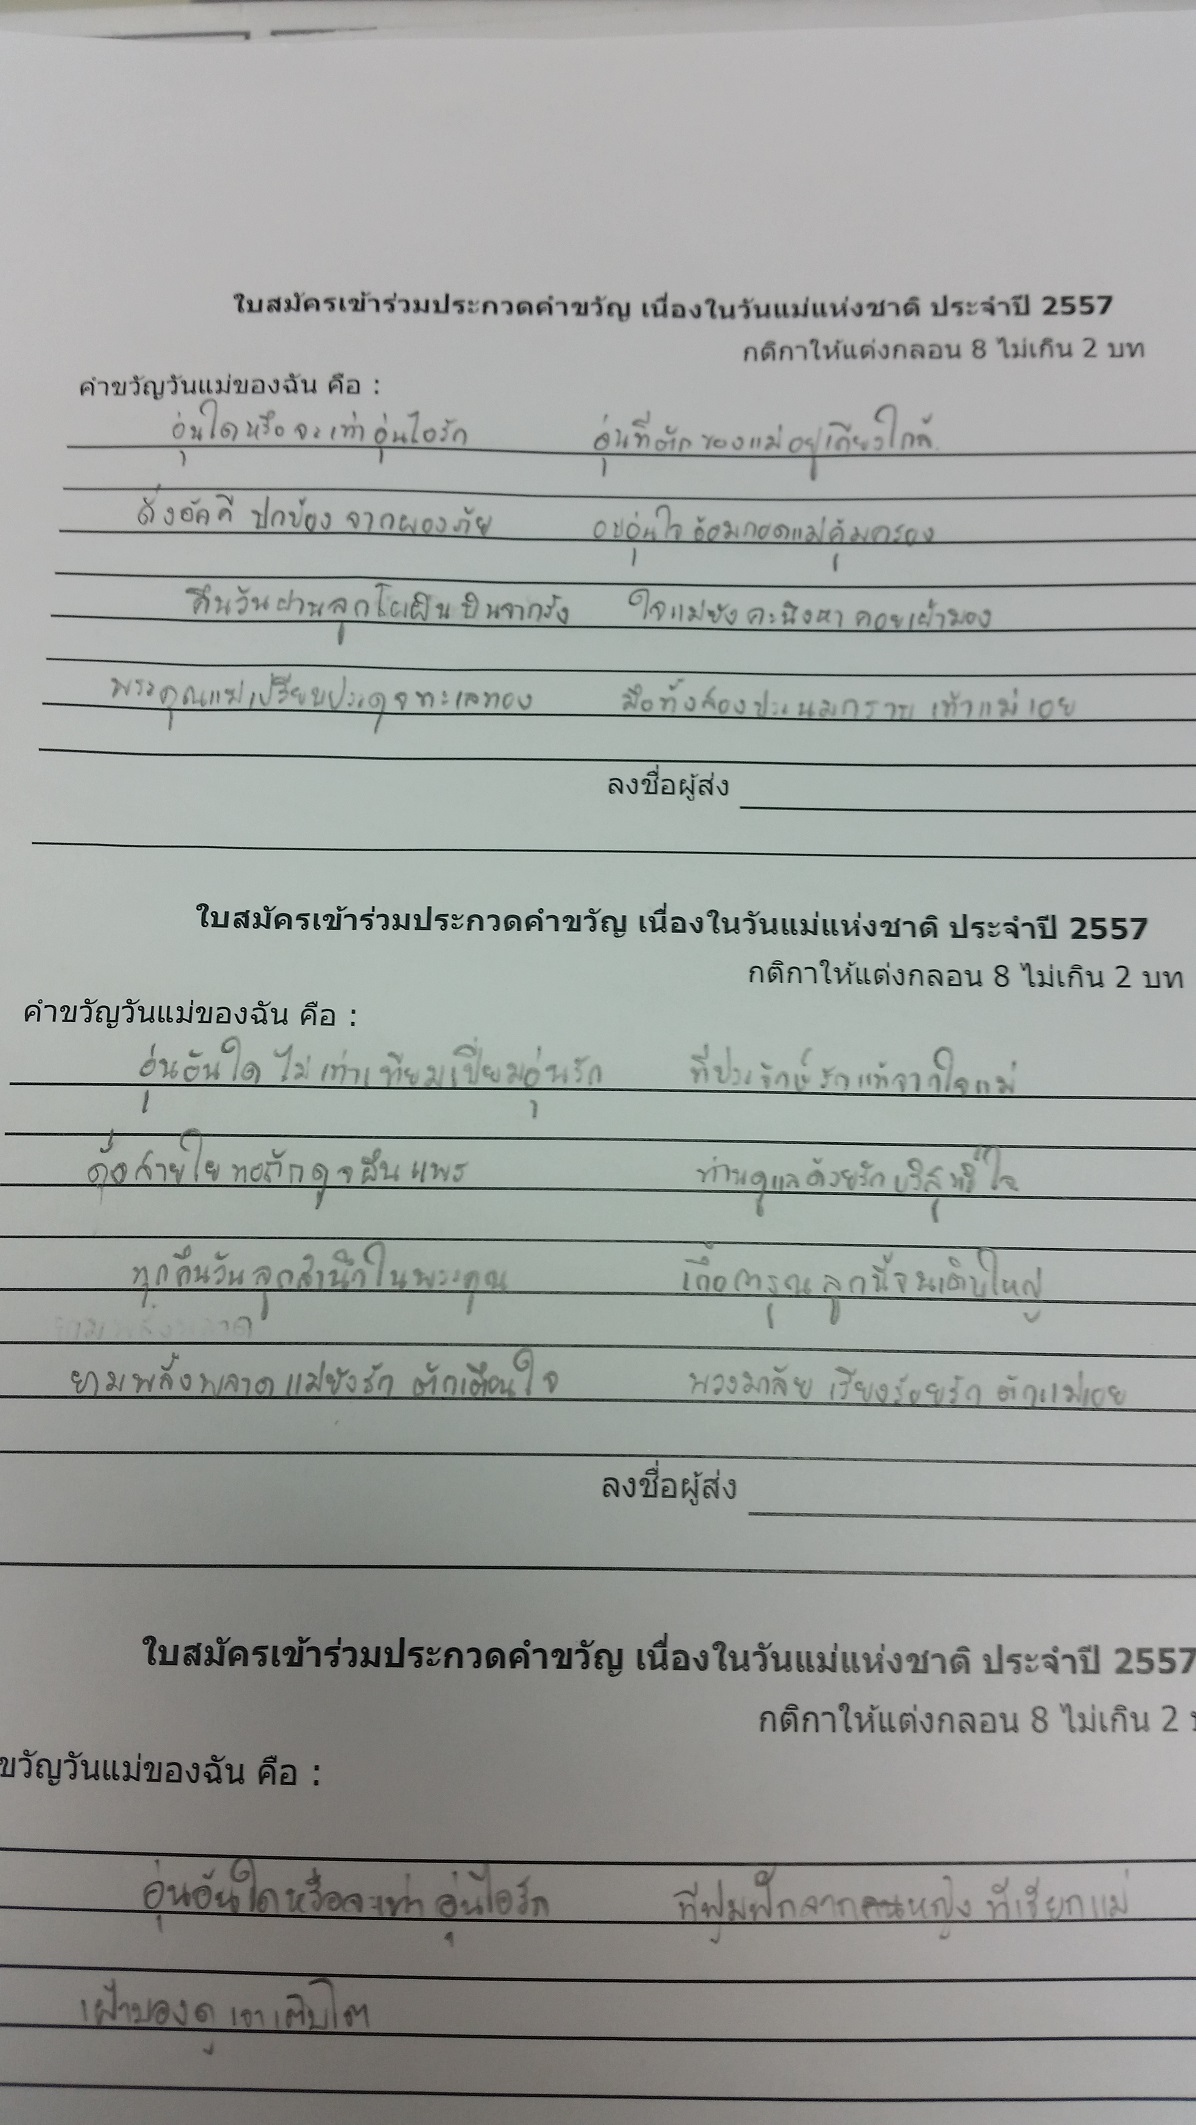 ใบสมัครเข้าร่วมประกวดคำขวัญ เนื่องในวันแม่แห่งชาติ ประจำปี 2557
กติกาให้แต่งกลอน 8 ไม่เกิน 2 บท
คำขวัญวันแม่ของฉัน คือ :
อุ่นใดหรือจะเท่าอุ่นไอรัก อุ่นที่ตักของแม่อยู่เคียงใกล้
ดั่งอัคคี ปกป้อง จากผองภัย อบอุ่นใจ อ้อมกอดแม่คุ้มครอง
คืนวันผ่านลูกโผเผินบินจากรัง ใจแม่ยัง คะนึงหา คอยเฝ้ามอง
พระคุณแม่เปรียบประดุจทะเลทอง มือทั้งสองประนมกราบ เท้าแม่เอย
ลงชื่อผู้ส่ง
ใบสมัครเข้าร่วมประกวดคำขวัญ เนื่องในวันแม่แห่งชาติ ประจำปี 2557
กติกาให้แต่งกลอน 8 ไม่เกิน 2 บท
คำขวัญวันแม่ของฉัน คือ :
อุ่นอันใด ไม่เท่าเทียมเปี่ยมอุ่นรัก ที่ประจักษ์รักแท้จากใจแม่
ดุจสายใย ทอถักดูจผืนแพร ท่านดูแลด้วยรักบริสุทธิ์ใจ
ทุกคืนวันลูกสำนึกในพระคุณ เกื้อการุณลูกนี้จนเติบใหญ่
ยามพลั้งพลาด
ยามพลั้งพลาด แม่ยังรัก ตักเตือนใจ พวงมาลัย เรียงร้อยรัก ตักแม่เอย
ลงชื่อผู้ส่ง
ใบสมัครเข้าร่วมประกวดคำขวัญ เนื่องในวันแม่แห่งชาติ ประจำปี 2557
กติกาให้แต่งกลอน 8 ไม่เกิน 2
ขวัญวันแม่ของฉัน คือ :
อุ่นอันใดหรือจะเท่า อุ่นไอรัก ที่ฟูมฟักจากคนหญิง ที่เรียกแม่
เฝ้ามองดู เราเติบโต